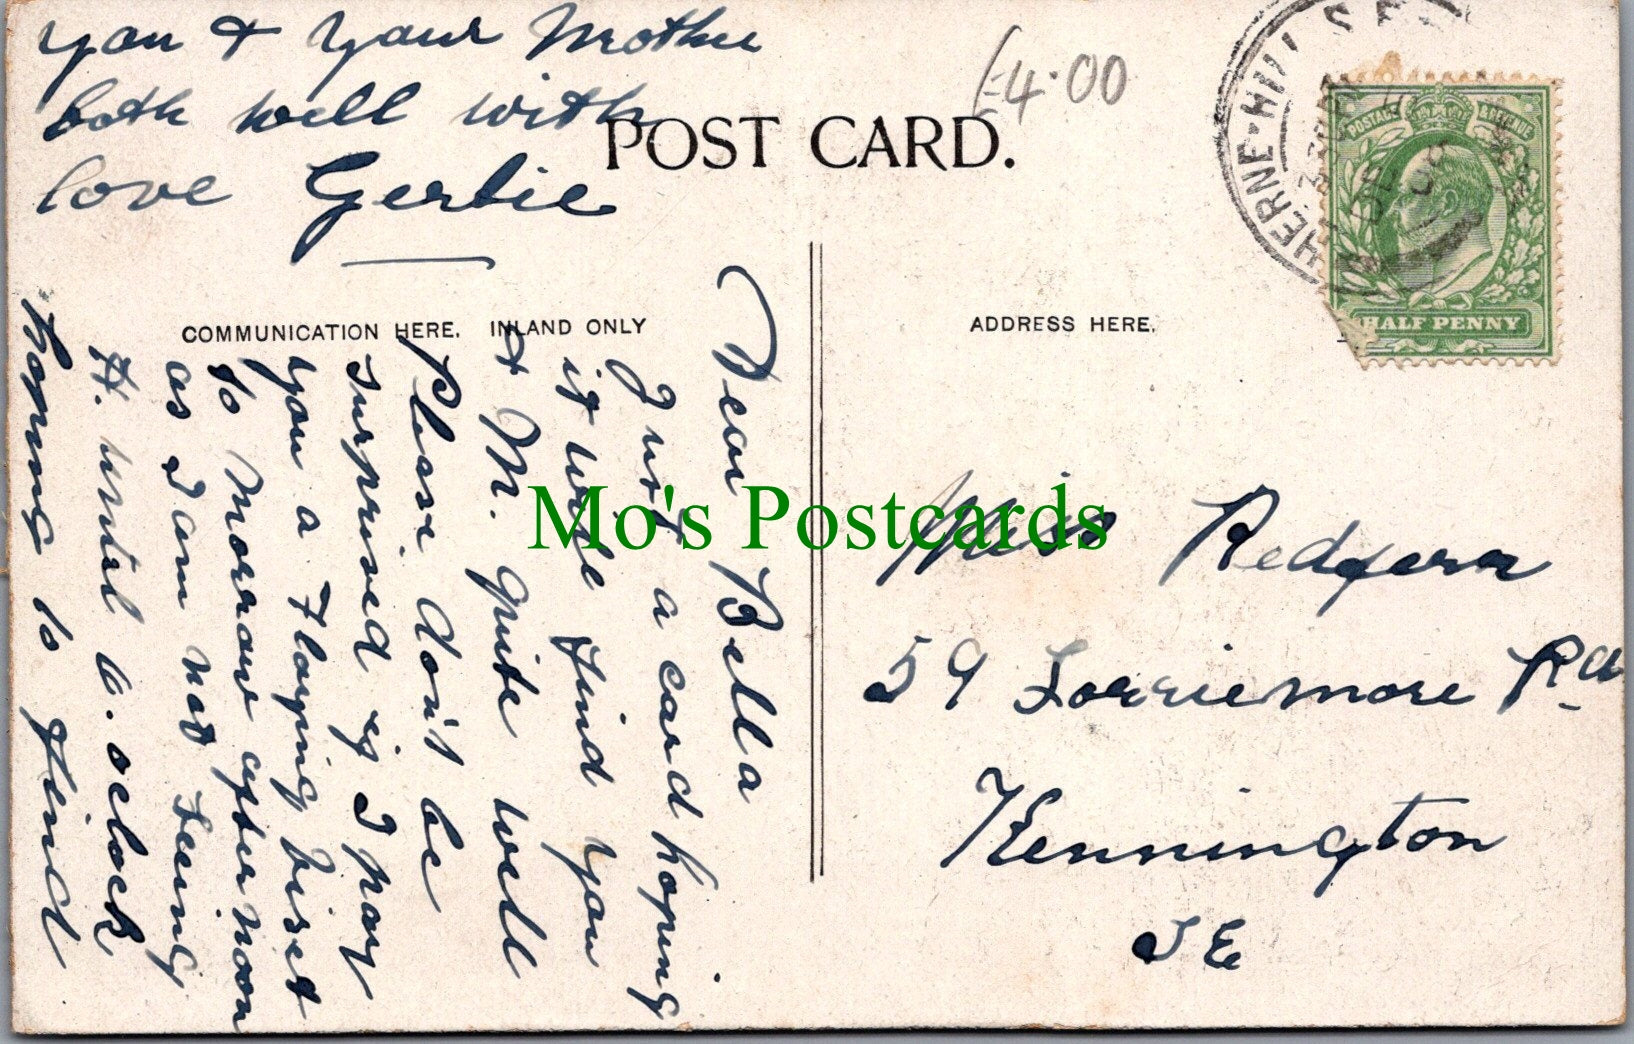 POST CARD.
£4.00
HERNE-HILL S.E.
DE
08
POSTAGE REVENUE
HALF PENNY
COMMUNICATION HERE. INLAND ONLY
ADDRESS HERE.
Dear Bella
Just a card hoping
it will find you
& M. quite well
Please don't be
surprised if I pay
you a Flaying visit
to Morrow after noon
as I am not seeing
H. until 6. oclock
hoping to find
you & your Mother
both well with
love Gertie
Miss Redgera
59 Lorriemore Rd
Kennington
S E
Mo's Postcards